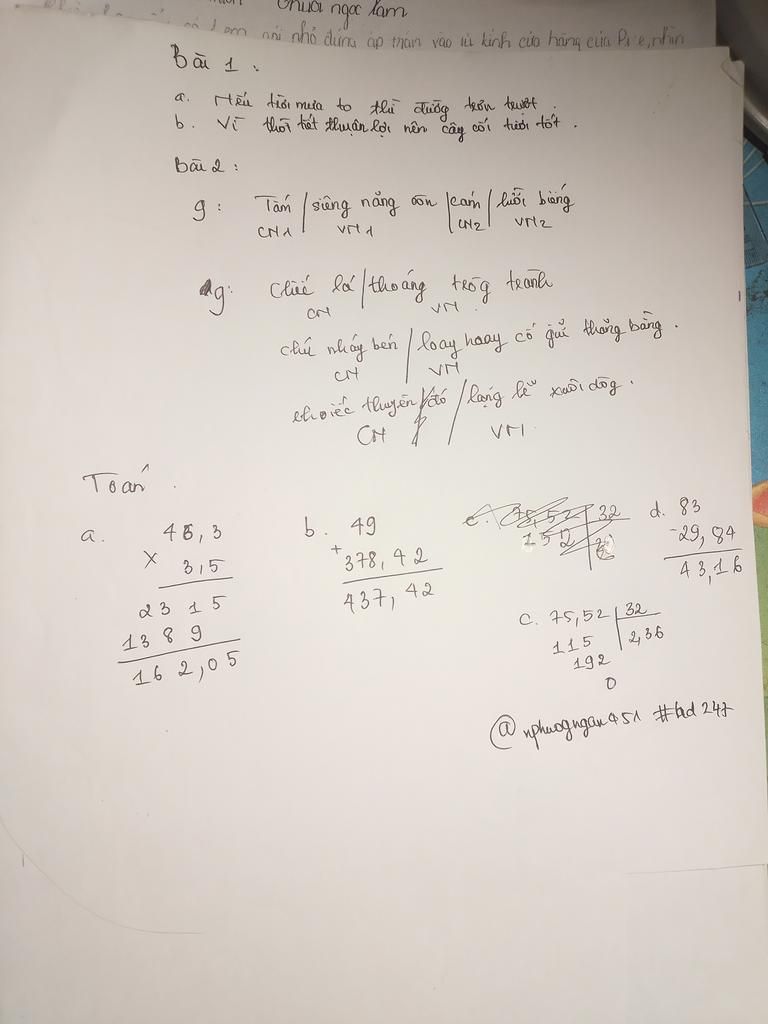 chuỗi ngọc lam
nói nhỏ đứng áp trán vào tủ kính cửa hàng của Pi-e, nhìn
Bài 1 :
a. Nếu trời mưa to thì đường trơn trượt .
b. Vì thời tiết thuận lợi nên cây cối tươi tốt .
Bài 2 :
g : Tấm / siêng năng còn / cám / lười biếng
CN1 VN1 CN2 VN2
g: Chiếc lá / thoáng tròg tranh
CN VN
chú nhảy bén / loay hoay cố giữ thăng bằng .
CN VN
chiếc thuyền đỏ / lặng lẽ xuôi dòg .
CN VN
Toán .
a. 46,3
x 3,5
2315
1389
162,05
b. 49
+ 378,42
437,42
c. 75,52 32
152
d. 83
- 29,84
43,16
c. 75,52 32
115 2,36
192
0
@nphuogngan451 #bd247